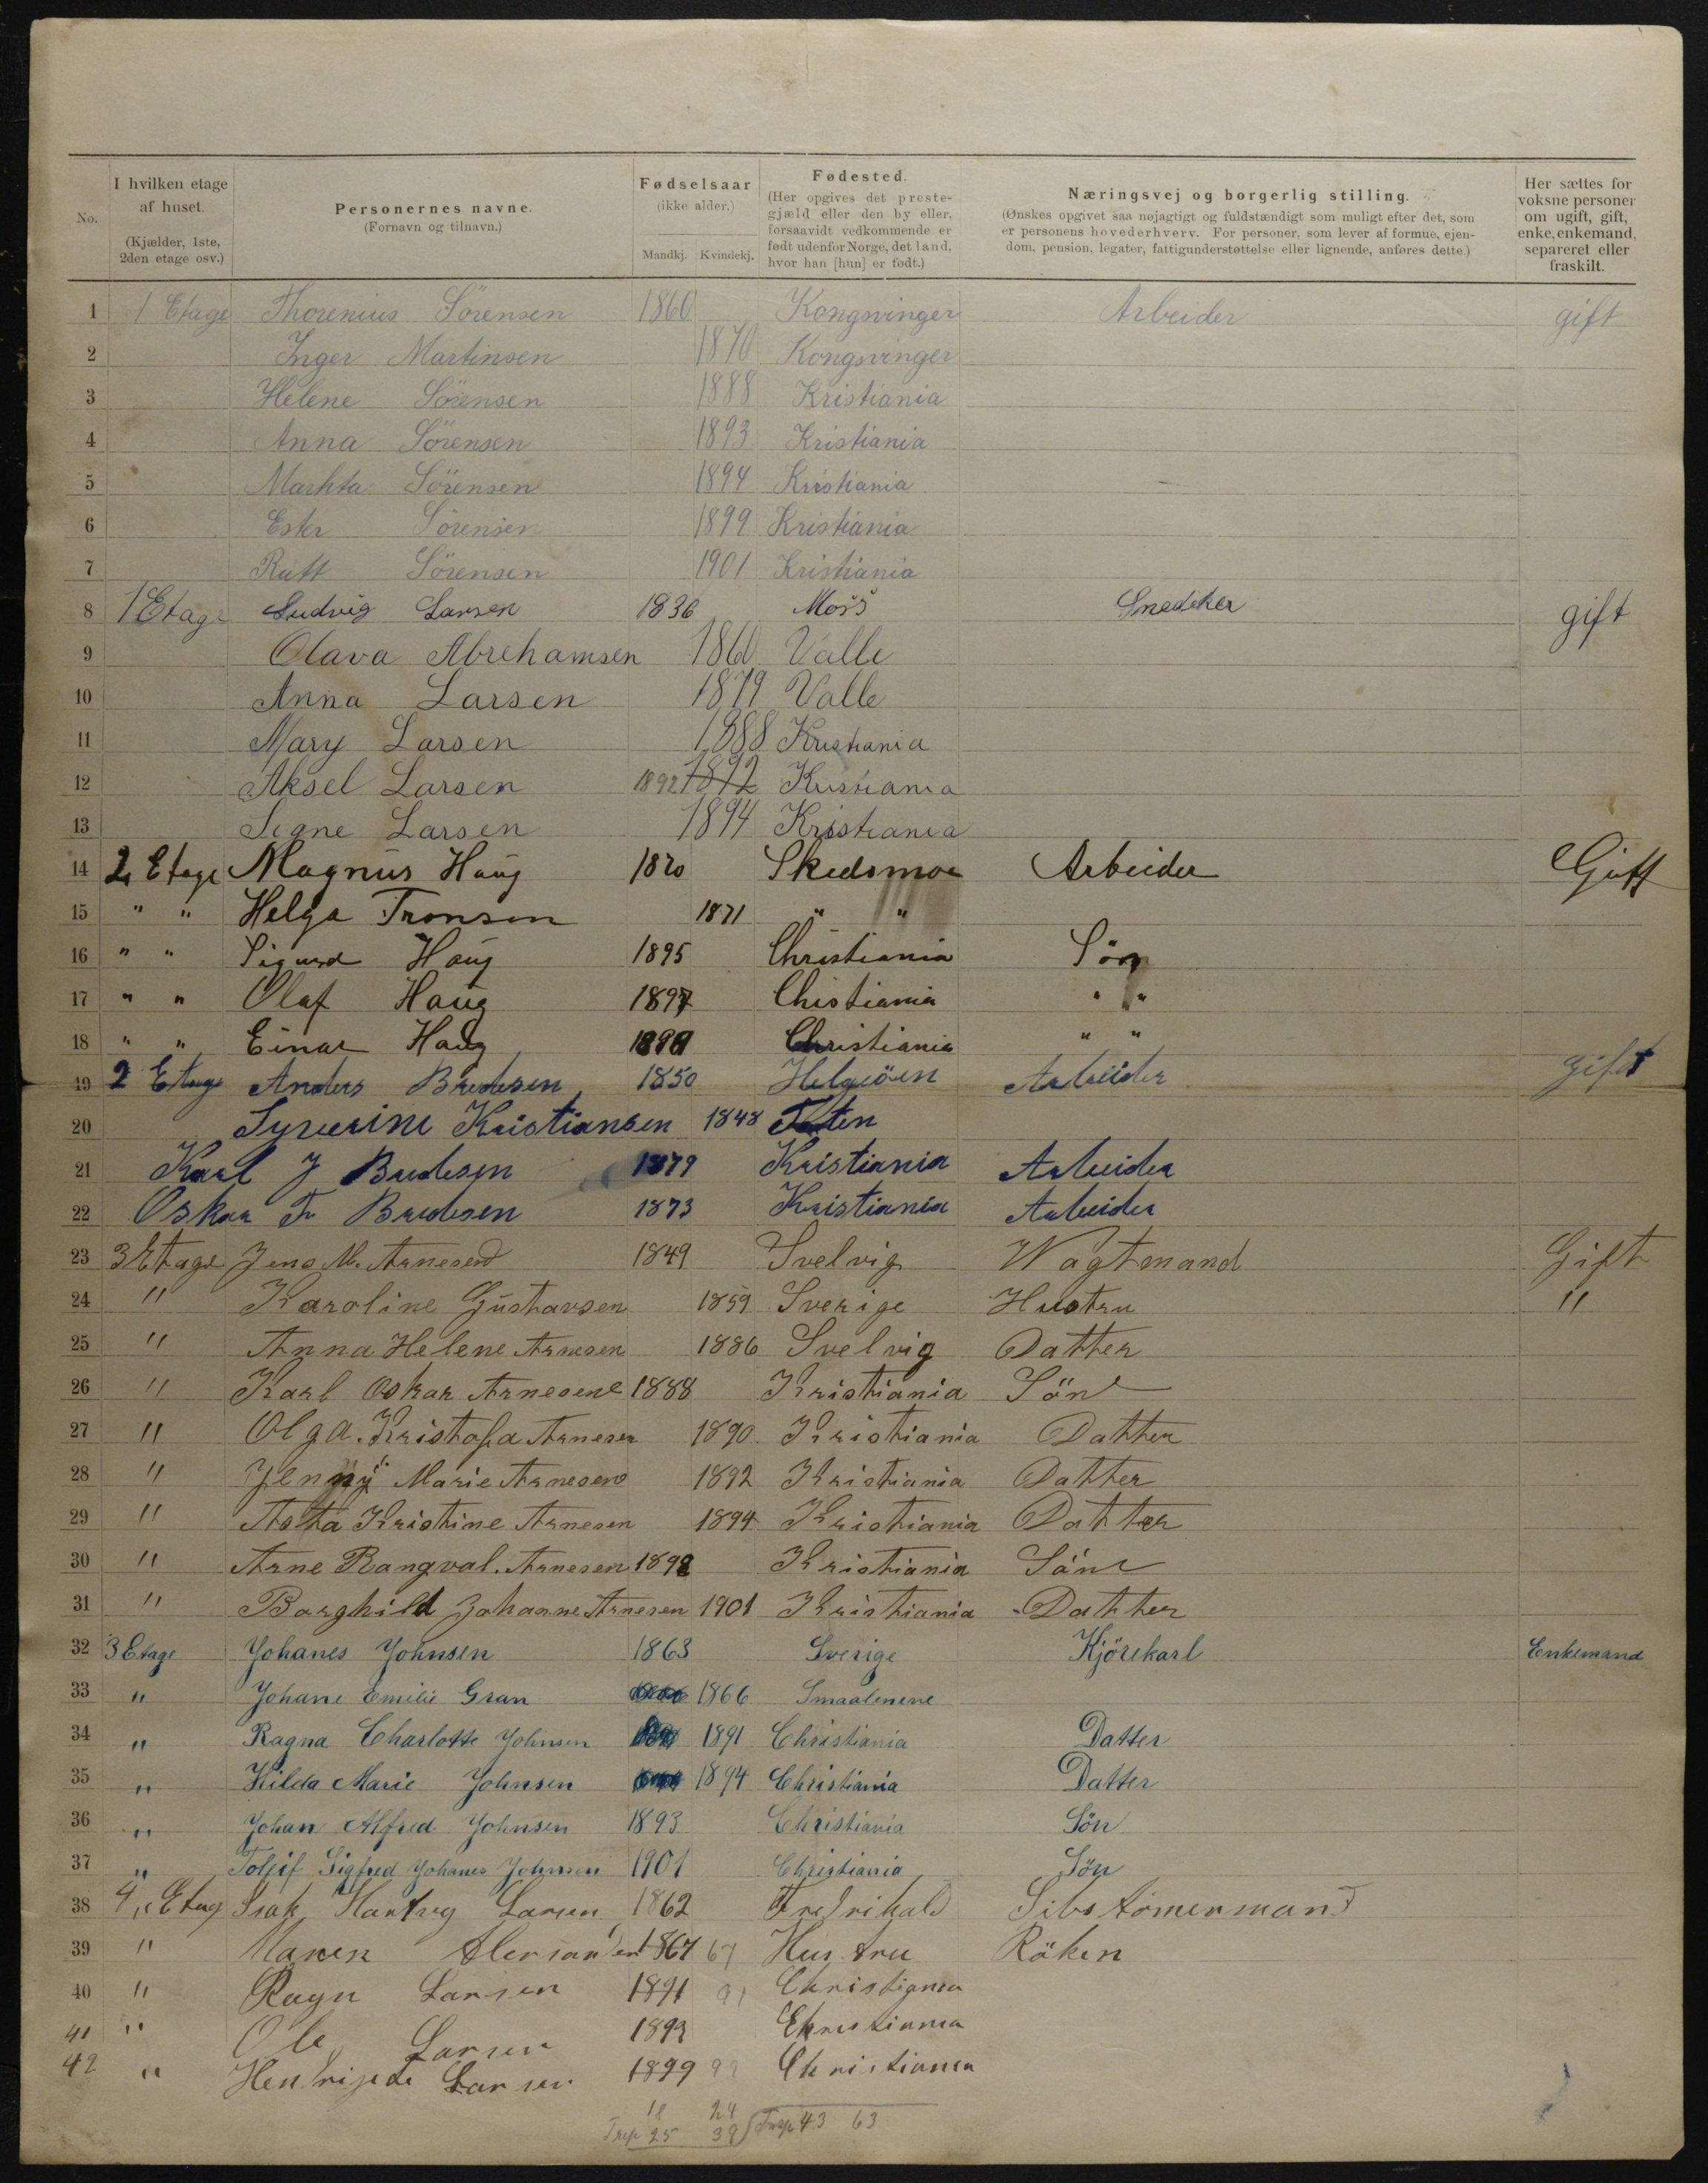 No. | I hvilken etage af huset. (Kjælder, 1ste, 2den etage osv.) | Personernes navne. (Fornavn og tilnavn.) | Fødselsaar (ikke alder.) Mandkj. Kvindekj. | Fødested. (Her opgives det prestegjæld eller den by eller, forsaavidt vedkommende er født udenfor Norge, det land, hvor han [hun] er født.) | Næringsvej og borgerlig stilling. (Ønskes opgivet saa nøjagtigt og fuldstændigt som muligt efter det, som er personens hovederhverv. For personer, som lever af formue, ejendom, pension, legater, fattigunderstøttelse eller lignende, anføres dette.) | Her sættes for voksne personer om ugift, gift, enke, enkemand, separeret eller fraskilt.
1 1 Etage Thorenius Sörensen 1860 Kongsvinger Arbeider gift
2 Inger Martinsen 1870 Kongsvinger
3 Helene Sörensen 1888 Kristiania
4 Anna Sörensen 1893 Kristiania
5 Markta Sörensen 1894 Kristiania
6 Ester Sörensen 1899 Kristiania
7 Rutt Sörensen 1901 Kristiania
8 1 Etage Ludvig Larsen 1836 Moss Snedeker gift
9 Olava Abrehamsen 1860 Valle
10 Anna Larsen 1879 Valle
11 Mary Larsen 1888 Kristiania
12 Aksel Larsen 1892 1892 Kristiania
13 Signe Larsen 1894 Kristiania
14 2 Etage Magnus Haug 1870 Skedsmoe Arbeider Gift
15 " " Helga Tronsen 1871 " "
16 " " Sigurd Haug 1895 Christiania Sön
17 " " Olaf Haug 1897 Chistiania " "
18 " " Einar Haug Christiania " "
19 2 Etage Anders Bredesen 1850 Helgeöen Arbeider gift
20 Syverine Kristiansen 1848 Toten
21 Karl J Bredesen 1879 Kristiania Arbeider
22 Oskar F Bredesen 1873 Kristiania Arbeider
23 3 Etage Jens M. Arnesen 1849 Svelvig Vagtmand Gift
24 " Karoline Gustavsen 1859 Sverige Hustru "
25 " Anna Helene Arnesen 1886 Svelvig Datter
26 " Karl Oskar Arnesen 1888 Kristiania Sön
27 " Olga. Kristofa Arnesen 1890 Kristiania Datter
28 " Jenny Marie Arnesen 1892 Kristiania Datter
29 " Asta Kristine Arnesen 1894 Kristiania Datter
30 " Arne Rangval. Arnesen 1898 Kristiania Sön
31 " Borghild Johanne Arnesen 1901 Kristiania Datter
32 3 Etage Johanes Johnsen 1863 Sverige Kjörekarl Enkemand
33 " Johane Emilie Gran 1866 Smaalenene
34 " Ragna Charlotte Johnsen 1891 Christiania Datter
35 " Hilda Marie Johnsen 1894 Christiania Datter
36 " Johan Alfred Johnsen 1893 Christiania Sön
37 " Toljif Sigfred Johanes Johnsen 1901 Christiania Sön
38 4 Etag Isak Hartvig Larsen 1862 Fredrikald Sibstömermand
39 " Maren 1867 67 Hustru Röken
40 " Ragn Larsen 1891 91 Christiania
41 " Ole Larsen 1893 Christiania
42 " Hendrijede Larsen 1899 99 Christiania
18 24
25 39 43 63